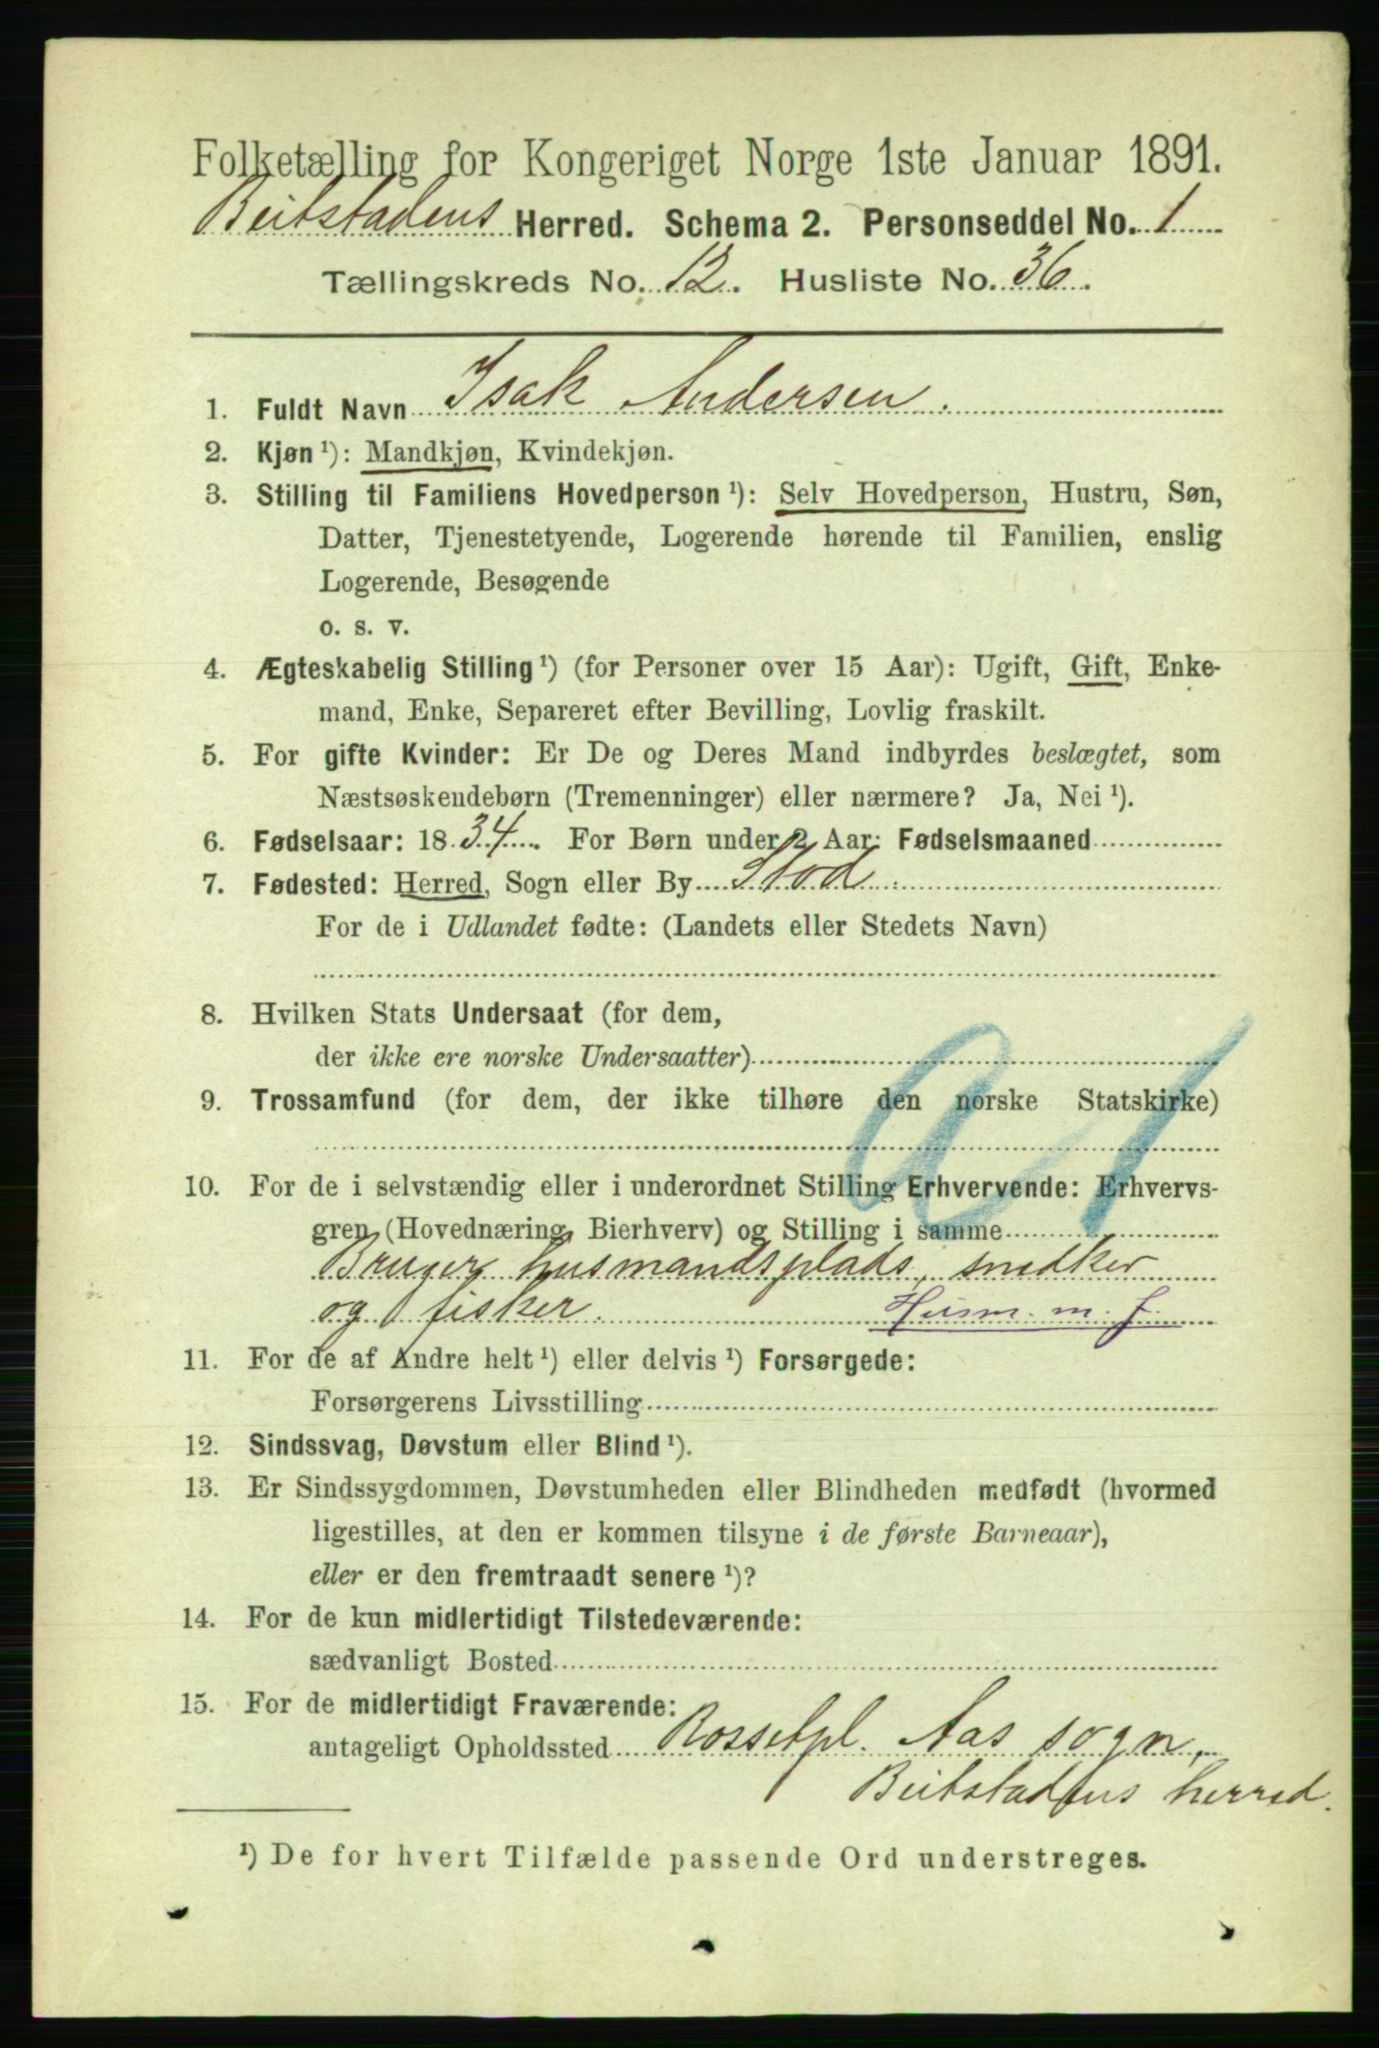 Folketælling for Kongeriget Norge 1ste Januar 1891.
Beitstadens Herred. Schema 2. Personseddel No. 1
Tællingskreds No. 12. Husliste No. 36.
1. Fuldt Navn Isak Andersen.
2. Kjøn ¹): Mandkjøn, Kvindekjøn.
3. Stilling til Familiens Hovedperson ¹): Selv Hovedperson, Hustru, Søn,
Datter, Tjenestetyende, Logerende hørende til Familien, enslig
Logerende, Besøgende
o. s. v.
4. Ægteskabelig Stilling ¹) (for Personer over 15 Aar): Ugift, Gift, Enke-
mand, Enke, Separeret efter Bevilling, Lovlig fraskilt.
5. For gifte Kvinder: Er De og Deres Mand indbyrdes beslægtet, som
Næstsøskendebørn (Tremenninger) eller nærmere? Ja, Nei ¹).
6. Fødselsaar: 1834. For Børn under 2 Aar: Fødselsmaaned
7. Fødested: Herred, Sogn eller By Stod.
For de i Udlandet fødte: (Landets eller Stedets Navn)
8. Hvilken Stats Undersaat (for dem,
der ikke ere norske Undersaatter)
9. Trossamfund (for dem, der ikke tilhøre den norske Statskirke)
10. For de i selvstændig eller i underordnet Stilling Erhvervende: Erhvervs-
gren (Hovednæring, Bierhverv) og Stilling i samme
Bruger husmandsplads, snedker
og fisker. Husm. m. j.
11. For de af Andre helt ¹) eller delvis ¹) Forsørgede:
Forsørgerens Livsstilling
12. Sindssvag, Døvstum eller Blind ¹).
13. Er Sindssygdommen, Døvstumheden eller Blindheden medfødt (hvormed
ligestilles, at den er kommen tilsyne i de første Barneaar),
eller er den fremtraadt senere ¹)?
14. For de kun midlertidigt Tilstedeværende:
sædvanligt Bosted
15. For de midlertidigt Fraværende:
antageligt Opholdssted Rossetpl. Aas sogn,
Beitstadens herred.
¹) De for hvert Tilfælde passende Ord understreges.